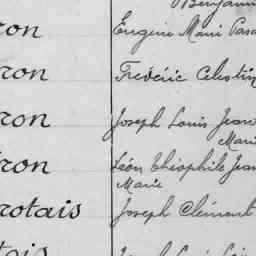 Benjamin
ron Eugène Marie Pasc
ron Frédéric Célestin
ron Joseph Louis Jean
Marie
ron Léon Théophile Jean
Marie
rotais Joseph Clément